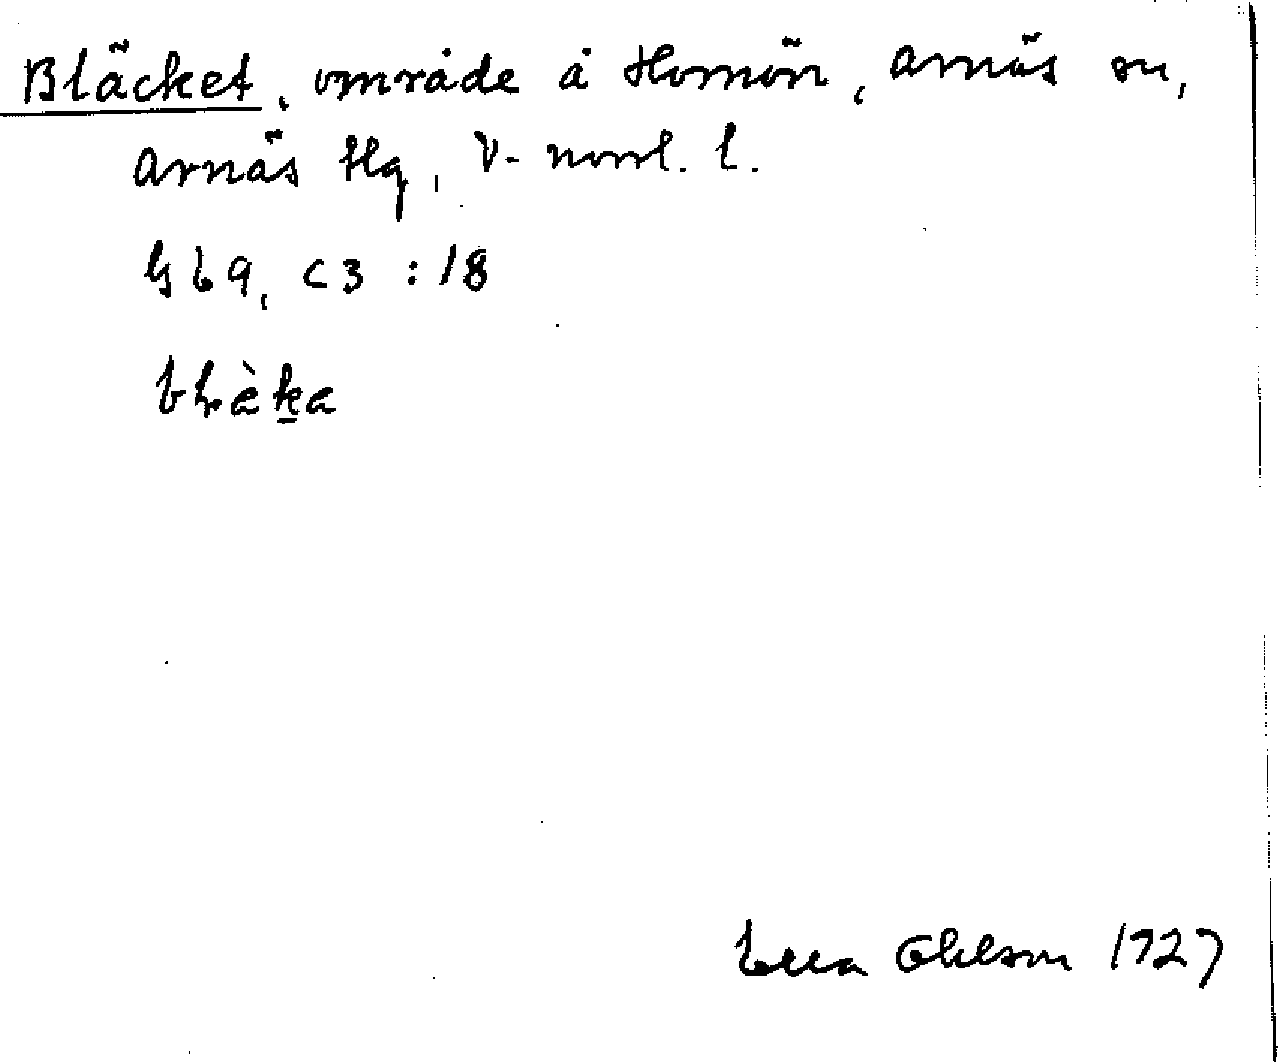 Bläcket, område å Hornön, Arnäs sn,
Arnäs tlg, V-norrl. l.
Gb9, c3 : 18
Ella Ohlson 1927